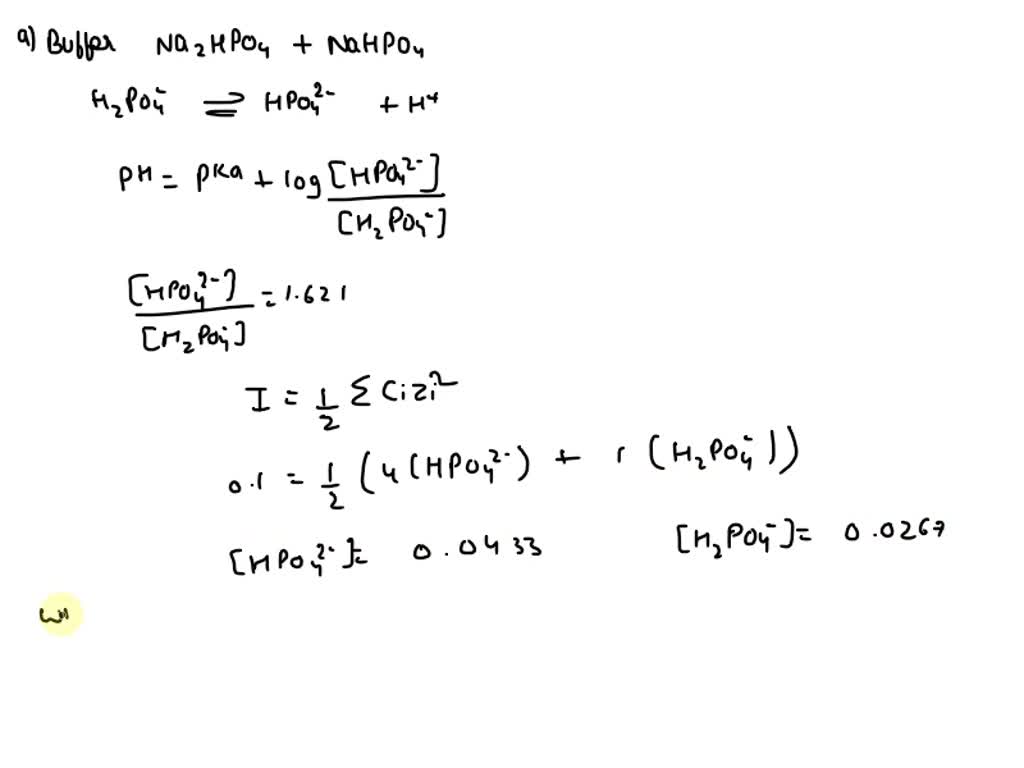 a) Buffer Na2HPO4 + NaHPO4
H2PO4⁻ ⇌ HPO4²⁻ + H⁺
PH = PKa + log [HPO4²⁻] / [H2PO4⁻]
[HPO4²⁻] / [H2PO4⁻] = 1.621
I = 1/2 Σ CiZi²
0.1 = 1/2 (4(HPO4²⁻) + 1(H2PO4⁻))
[HPO4²⁻] = 0.0433 [H2PO4⁻] = 0.0267